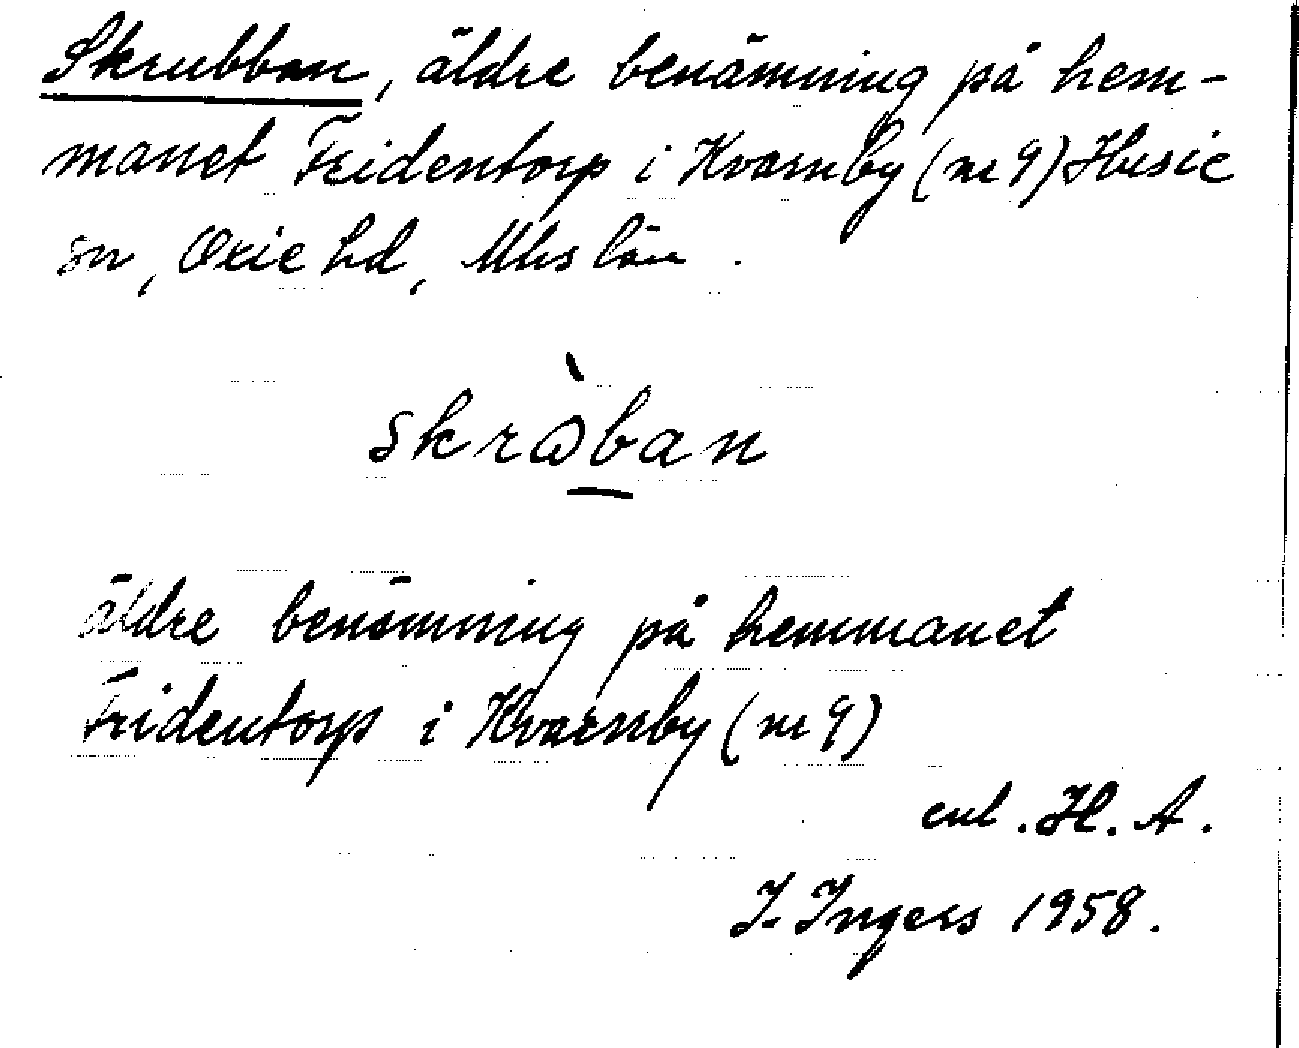 Skrubban, äldre benämning på hem-
manet Fridentorp i Kvarnby (nr 9) Husie
sn, Oxie hd, Mhs län.
skròban
äldre benämning på hemmanet
Fridentorp i Kvarnby (nr 9)
enl. H. A.
I. Ingers 1958.